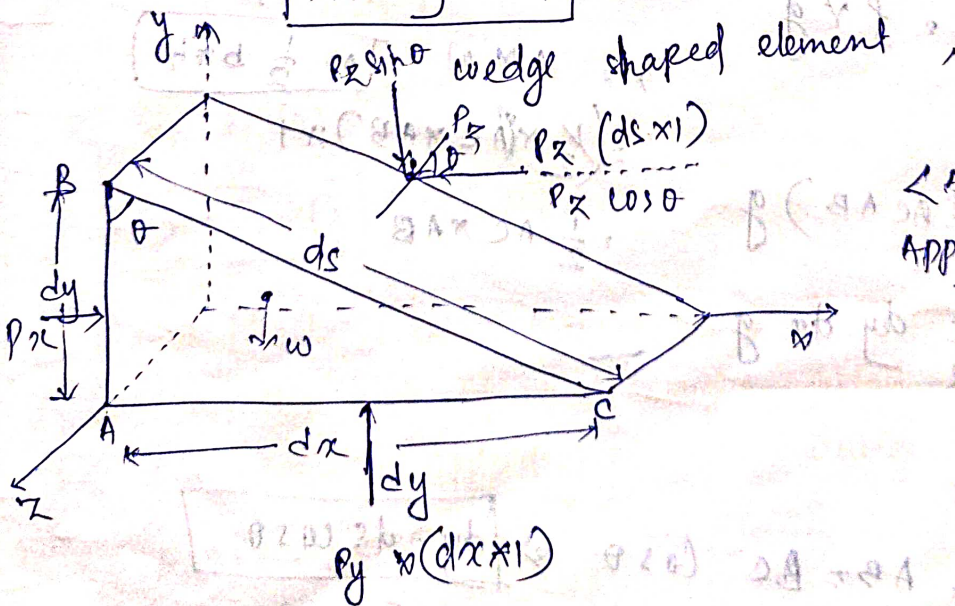 y
Pz sinθ wedge shaped element ,
Pz
θ
Pz (ds×1)
Pz cosθ
B
θ
ds
dy
Px
w
x
A
C
dx
dy
z
Py × (dx×1)